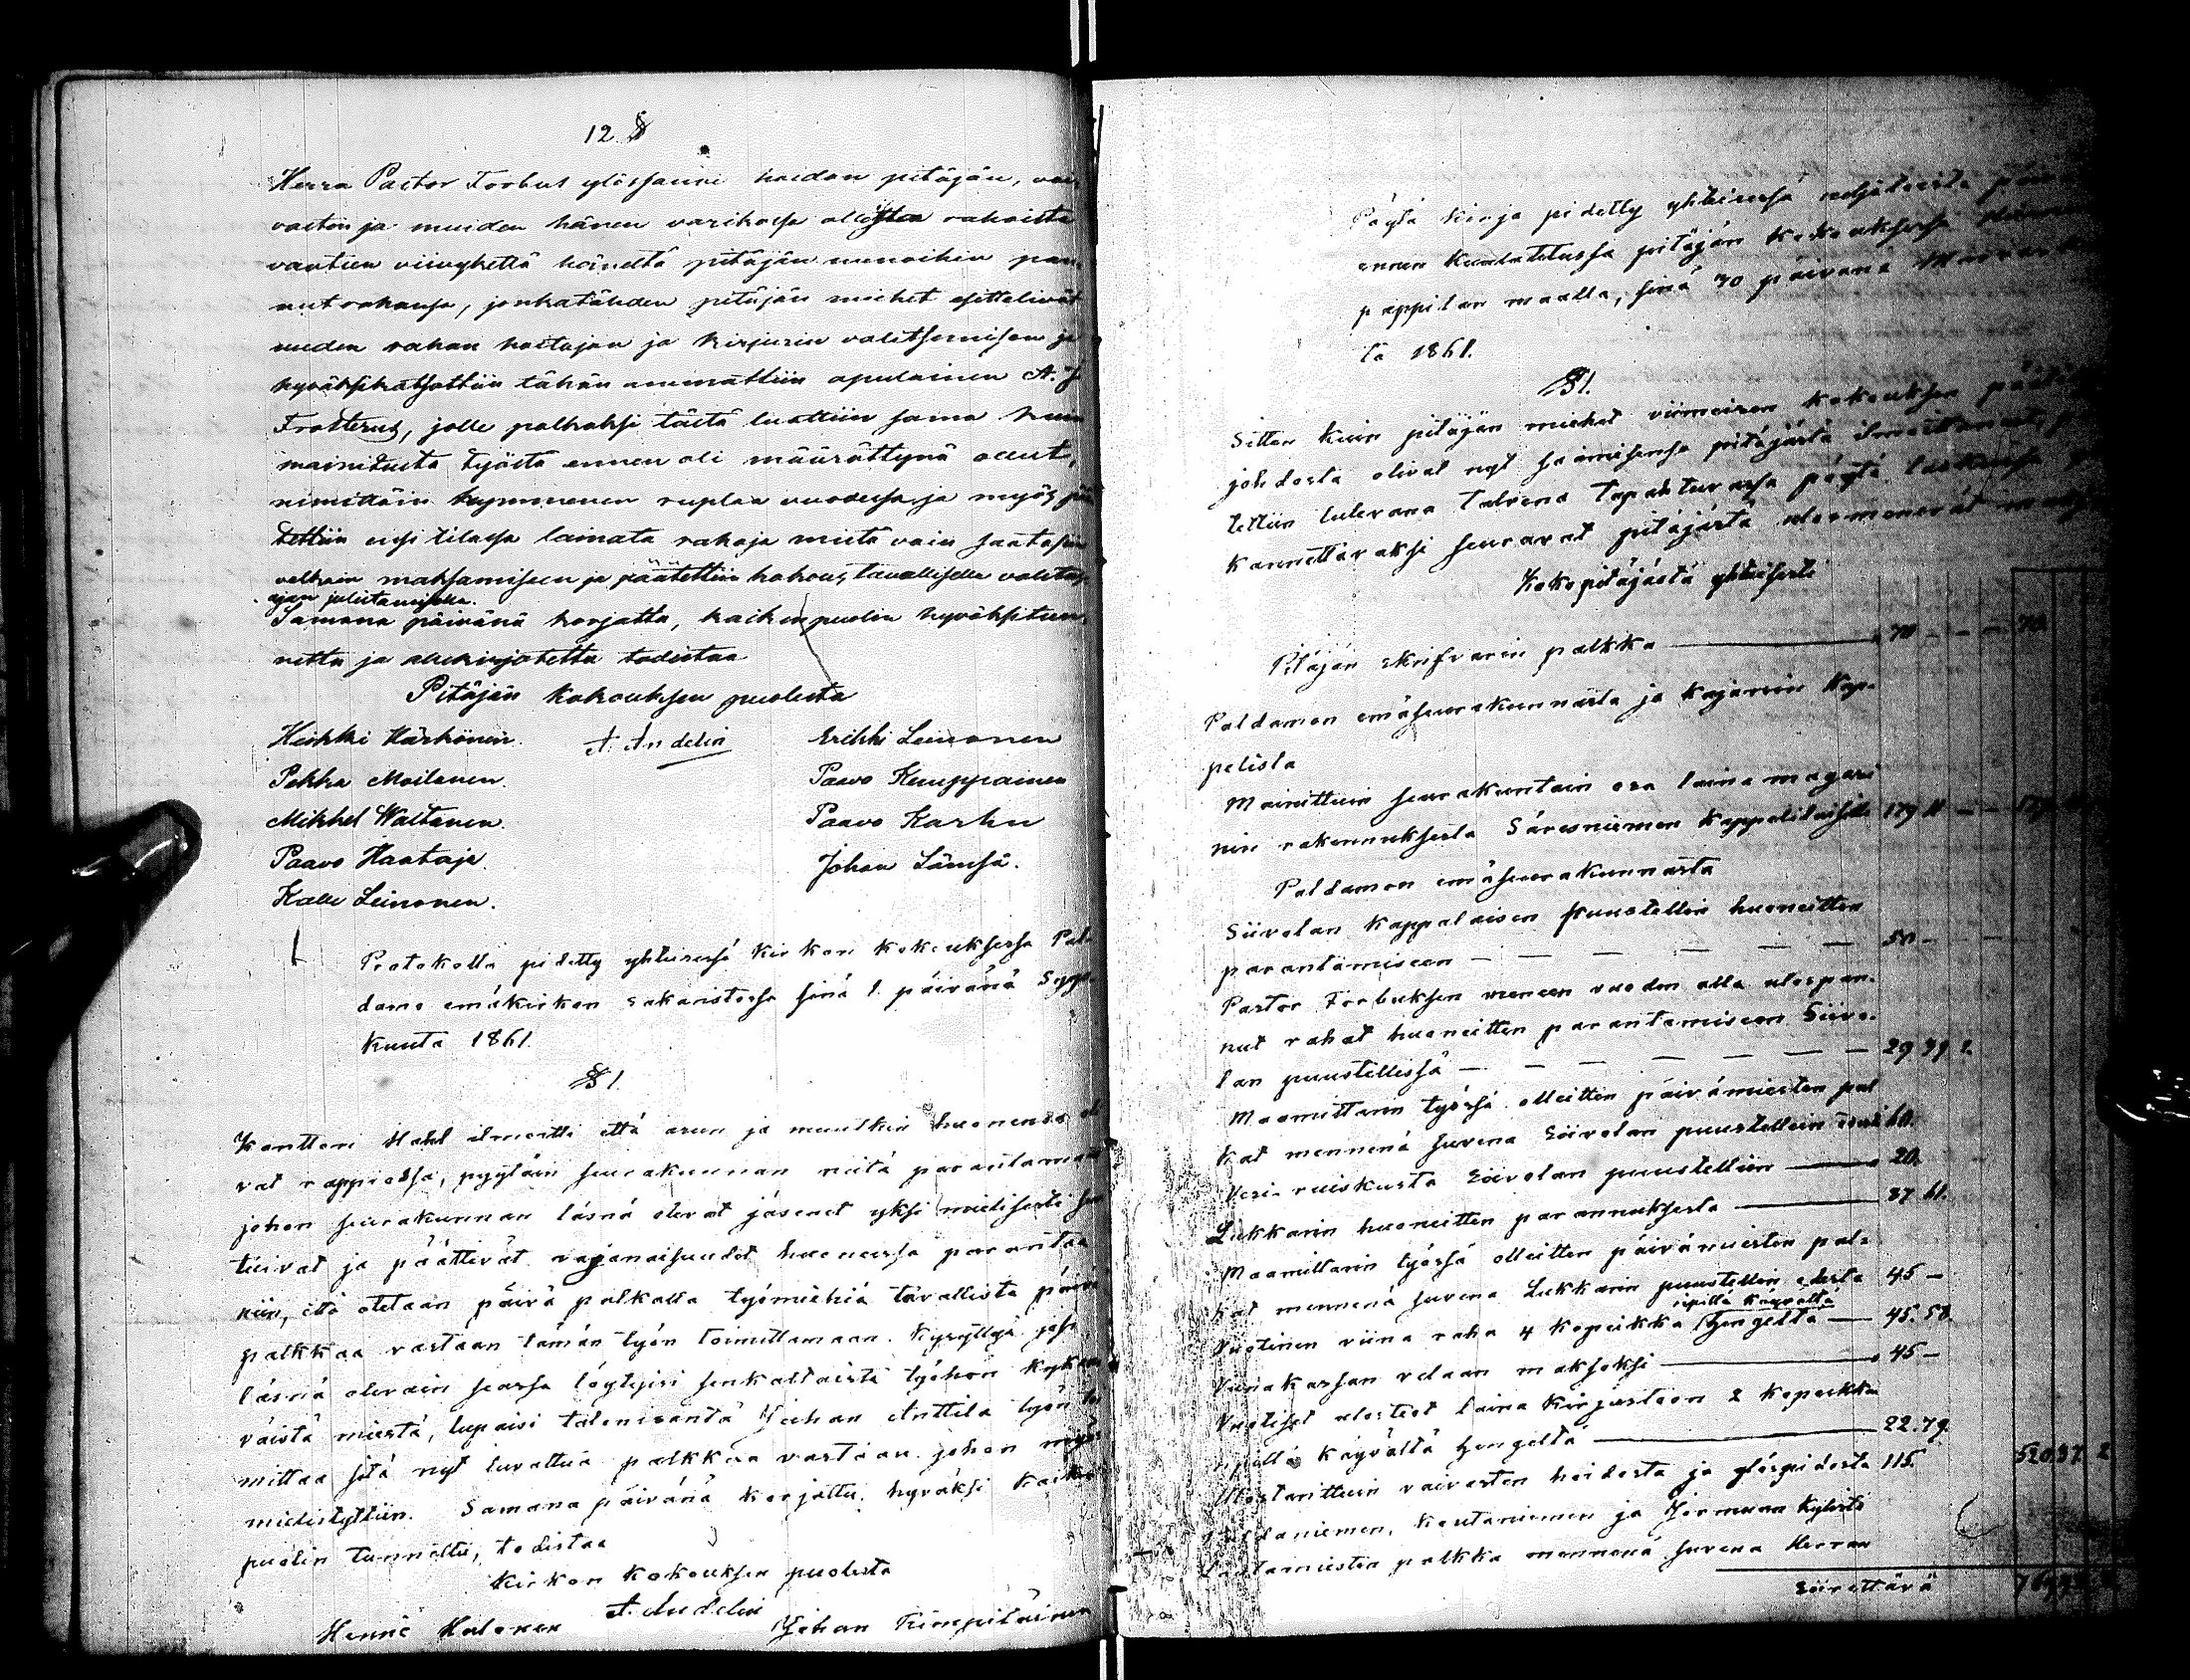 12 §
Herra Pastor Forbus ylössanoi hoidon pitäjän, vai-
vasten ja muiden hänen varikossa olleista rahoista
vaatien viivyhettä häneltä pitäjän menoihin pan-
nut rahansa, jonkatähden pitäjän miehet esittelivät
uuden rahan hoitajan ja kirjurin valitsemisen ja
hyväksikatsottiin tähän ammattiin apulainen A. J
Frosterus, jolle palkaksi tästä luottiin sama kuin
mainitusta työstä ennen oli määrättynä ollut,
nimittäin kymmenen ruplaa vuodessa ja myös pää
tettiin ensi tilassa lainata rahoja mistä vain saataisiin
velkain maksamiseen ja päätettiin kokous tavallisella valitus
ajan julistamisella.
Samana päivänä korjattu, kaikin puolin hyväksitun-
nettu ja allekirjotettu todistaa
Pitäjän kokouksen puolesta
Heikki Härkönen. A. Andelin Erikki Leinonen
Pekka Moilanen. Paavo Kemppainen
Mikkel Waltanen. Paavo Karhu
Paavo Haataja. Johan Länsiä.
Kalle Leinonen.
Protokolla pidetty yhteisessä Kirkon kokouksessa Pal-
damo emäkirkon sakaristossa sinä 1. päivänä Syys-
kuuta 1861.
§ 1.
Kanttori Hahl ilmoitti että asun ja muutkin huonensa ol
vat rappiossa, pyytäin seurakunnan niitä parantamaan
johon seurakunnan läsnä olevat jäsenet yksi mielisesti suos
tuivat ja päättivät vajanaisuudet huoneissa parantaa
niin, että otetaan päivä palkalla työmiehiä tavallista päivä
palkkaa vastaan tämän työn toimittamaan. Kysyttyä josi
läsnä olevain seassa löytyisi senkaltaista työhön kykene
väistä miestä, lupaisi talonisäntä Johan Anttila työn toi
mittaa sitä nyt luvattua palkkaa vastaan johon myös
mielistyttiin. Samana päivänä korjattu, hyväksi kaikin
puolin tunnettu, todistaa
Kirkon kokouksen puolesta
A. Andelin
Henric Halonen Johan Kimpiläinen
Pöytä kirja pidetty yhteisessä neljätoista päivää
ennen kuulutetussa pitäjän kokouksessa
pappilan maalla, sinä 30 päivänä Marras
ta 1861.
§ 1.
Sitten kuin pitäjän miehet viimeisen kokouksen päätöksen
johdosta olivat nyt saamisensa pitäjästä ilmoittaneet,
tettiin tulevana talvena tapahtuvassa pöytä laskussa
kannettavaksi seuravat pitäjästä ulosmenevät
Koko pitäjästä yhteisesti
Pitäjän skrifvarin palkka 70 — — 70
Paldamon emäseurakunnasta ja Kajaanin Kap-
pelista
Mainittuin seurakuntain osa laina magasi
nin rakennuksesta Säresniemen Kappelilaisille 179 11 —
Paldamon emäseurakunnasta
Siivolan Kappalaisen puustellin huoneitten
parantamiseen — — — — — 50 —
Pastor Forbuksen menneen vuoden alla ulospan-
nut rahat huoneitten parantamiseen Siivo-
lan puustellissä — — — — — 29 39 2.
Maamittarin työssä olleitten päivämiesten pal
kat mennenä suvena Siivolan puustellein 60.
Vesi-ruiskusta Siivolan puustelliin 20.
Lukkarin huoneitten parannuksesta 37 61.
Maamittarin työssä olleitten päivämiesten pal-
kat mennenä suvena Lukkarin puustellin edestä 45 —
Vuotinen viina raha 4 kopeikka ripillä käyvältä hengeltä 45. 58.
Viinakassan velaan maksoksi 45 —
Vuotiset ulosteot laina kirjastoon 2 kopeikka
ripillä käyvältä hengeltä 22. 79.
Ulostanittuin vaivasten hoidosta ja ylöspidosta 115. 520 37 2
Paldaniemen, Koutaniemen ja Jormuan kylistä
Lautamiesten palkka mennenä suvena Herran
Siirettävä